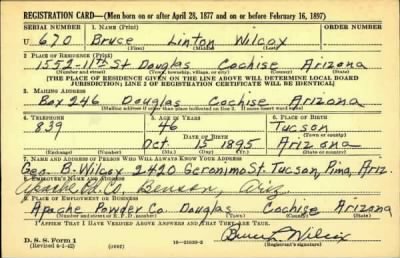 REGISTRATION CARD—(Men born on or after April 28, 1877 and on or before February 16, 1897)
SERIAL NUMBER 1. NAME (Print)
U 670 Bruce Linton Wilcox
(First) (Middle) (Last)
2. PLACE OF RESIDENCE (Print)
1552-11th St Douglas Cochise Arizona
(Number and street) (Town, township, village, or city) (County) (State)
[THE PLACE OF RESIDENCE GIVEN ON THE LINE ABOVE WILL DETERMINE LOCAL BOARD
JURISDICTION; LINE 2 OF REGISTRATION CERTIFICATE WILL BE IDENTICAL]
3. MAILING ADDRESS
Box 246 Douglas Cochise Arizona
[Mailing address if other than place indicated on line 2. If same insert word same]
4. TELEPHONE 5. AGE IN YEARS 6. PLACE OF BIRTH
839 46 Tucson
DATE OF BIRTH (Town or county)
Oct 15 1895 Arizona
(Exchange) (Number) (Mo.) (Day) (Yr.) (State or country)
7. NAME AND ADDRESS OF PERSON WHO WILL ALWAYS KNOW YOUR ADDRESS
Geo. B. Wilcox 2420 Geronimo St. Tucson, Pima, Ariz.
8. EMPLOYER'S NAME AND ADDRESS
Apache Pd. Co., Benson, Ariz
9. PLACE OF EMPLOYMENT OR BUSINESS
Apache Powder Co. Douglas Cochise Arizona
(Number and street or R. F. D. number) (Town) (County) (State)
I AFFIRM THAT I HAVE VERIFIED ABOVE ANSWERS AND THAT THEY ARE TRUE.
Bruce L Wilcox
D. S. S. Form 1
(Revised 4-1-42) (over) 16-21630-2 (Registrant's signature)